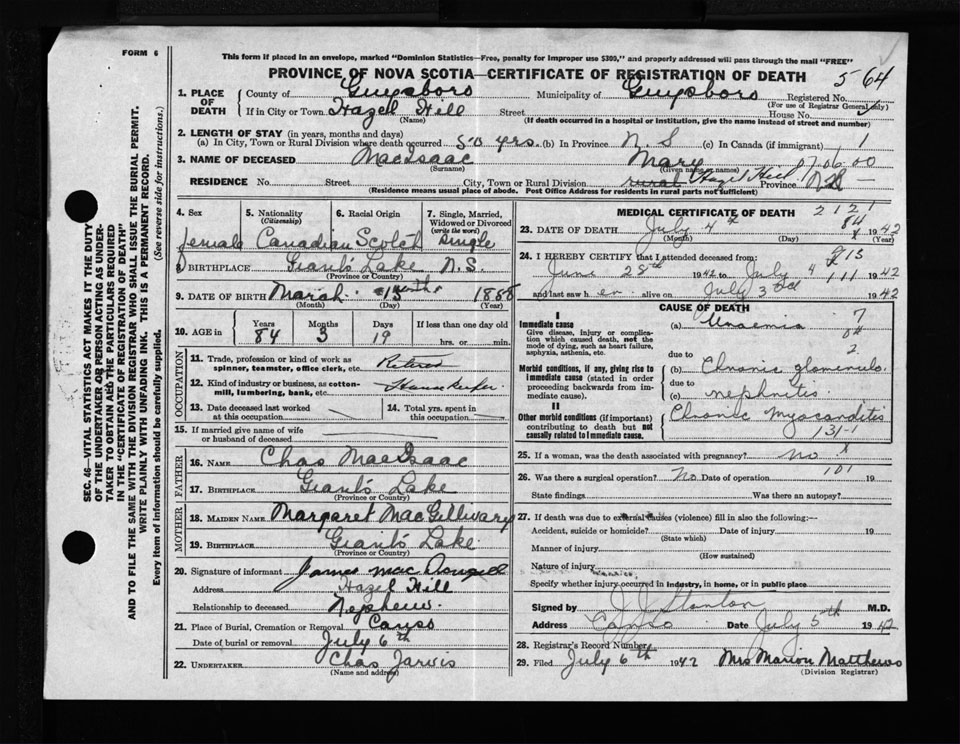 FORM 6
This form if placed in an envelope, marked "Dominion Statistics—Free, penalty for improper use $300," and properly addressed will pass through the mail "FREE"
PROVINCE OF NOVA SCOTIA—CERTIFICATE OF REGISTRATION OF DEATH
5 64
1. PLACE OF DEATH
County of Guysboro Municipality of Guysboro Registered No.
(For use of Registrar General only)
If in City or Town Hazel Hill Street House No.
(Name) (If death occurred in a hospital or institution, give the name instead of street and number)
2. LENGTH OF STAY (in years, months and days)
(a) In City, Town or Rural Division where death occurred 50 yrs. (b) In Province N.S (c) In Canada (if immigrant)
3. NAME OF DECEASED MacIsaac Mary
(Surname) (Given name or names)
17.06.00
RESIDENCE No. Street City, Town or Rural Division rural Hazel Hill Province
(Residence means usual place of abode. Post Office Address for residents in rural parts not sufficient)
4. Sex
5. Nationality (Citizenship)
6. Racial Origin
7. Single, Married, Widowed or Divorced (write the word)
Female Canadian Scotch Single
8 BIRTHPLACE Giant's Lake N.S.
(Province or Country)
9. DATE OF BIRTH March 15 1858
(Month) (Day) (Year)
10. AGE in Years Months Days If less than one day old
84 3 19 hrs. or min.
OCCUPATION
11. Trade, profession or kind of work as spinner, teamster, office clerk, etc. Retired
12. Kind of industry or business, as cotton-mill, lumbering, bank, etc. Housekeeper
13. Date deceased last worked at this occupation
14. Total yrs. spent in this occupation
15. If married give name of wife or husband of deceased
FATHER
16. NAME Chas MacIsaac
17. BIRTHPLACE Giant's Lake
(Province or Country)
MOTHER
18. MAIDEN NAME Margaret MacGillivary
19. BIRTHPLACE Giant's Lake
(Province or Country)
20. Signature of informant James Mac Dougall
Address Hazel Hill
Relationship to deceased Nephew.
21. Place of Burial, Cremation or Removal Canso
Date of burial or removal July 6th
22. UNDERTAKER Chas Jarvis
(Name and address)
MEDICAL CERTIFICATE OF DEATH
2121
84
23. DATE OF DEATH July 4th 1942
(Month) (Day) (Year)
24. I HEREBY CERTIFY that I attended deceased from:
June 28th 1942 to July 4 1942
111
and last saw her alive on July 3rd 1942
CAUSE OF DEATH
I
Immediate cause
Give disease, injury or complication which caused death, not the mode of dying, such as heart failure, asphyxia, asthenia, etc.
(a) Uraemia
due to
Morbid conditions, if any, giving rise to immediate cause (stated in order proceeding backwards from immediate cause).
(b) Chronic glomerulo
due to
(c) nephritis
II
Other morbid conditions (if important) contributing to death but not causally related to immediate cause.
Chronic Myocarditis
131-1
25. If a woman, was the death associated with pregnancy? no
26. Was there a surgical operation? No Date of operation 19
101
State findings Was there an autopsy?
27. If death was due to external causes (violence) fill in also the following:—
Accident, suicide or homicide? Date of injury 19
(State which)
Manner of injury
(How sustained)
Nature of injury
Specify whether injury occurred in industry, in home, or in public place
Signed by J J Stanton M.D.
Address Canso Date July 5th 1942
28. Registrar's Record Number
29. Filed July 6th 1942 Mrs Marion Matthews
(Division Registrar)
SEC. 46—VITAL STATISTICS ACT MAKES IT THE DUTY
OF THE UNDERTAKER OR PERSON ACTING AS UNDER-
TAKER TO OBTAIN ALL THE PARTICULARS REQUIRED
IN THE "CERTIFICATE OF REGISTRATION OF DEATH"
AND TO FILE THE SAME WITH THE DIVISION REGISTRAR WHO SHALL ISSUE THE BURIAL PERMIT.
WRITE PLAINLY WITH UNFADING INK. THIS IS A PERMANENT RECORD.
Every item of information should be carefully supplied. (See reverse side for instructions.)